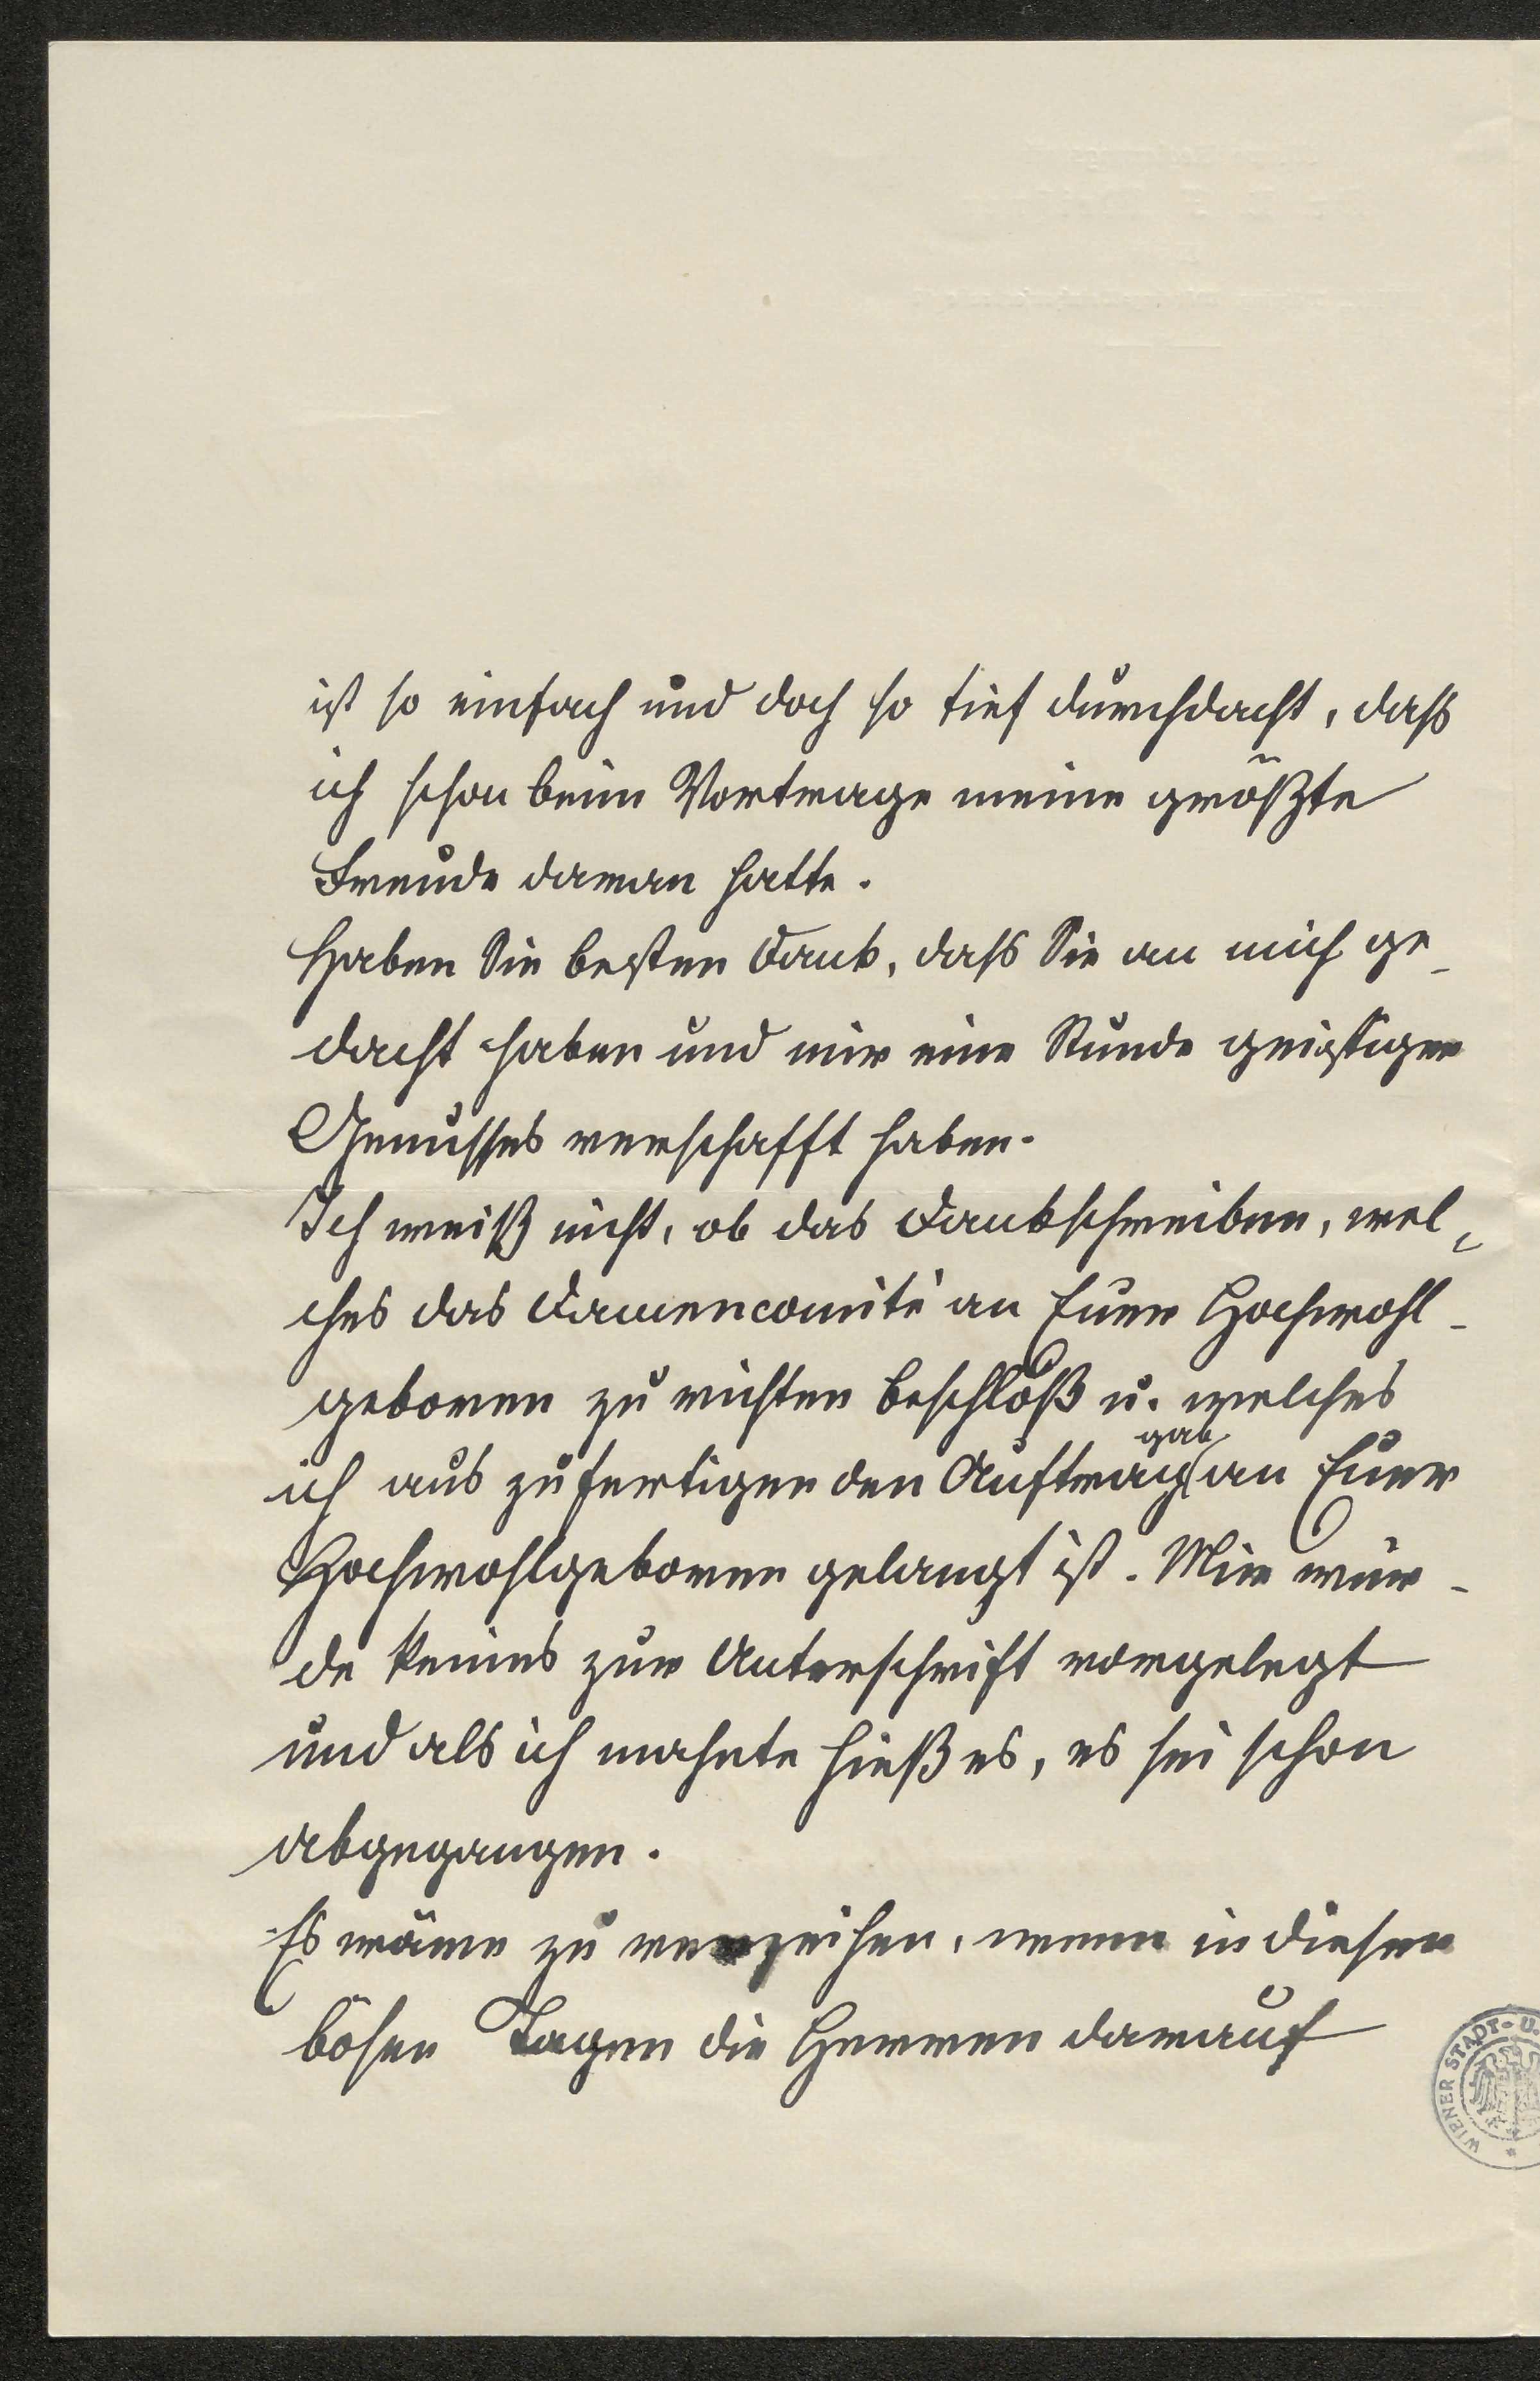 ist so einfach und doch so tief durchdacht, dass
ich schon beim Vortrage meine größte
Freude daran hatte.
Haben Sie besten Dank, dass Sie an mich ge-
dacht haben und mir eine Stunde geistigen
Genusses verschafft haben.
Ich weiß nicht, ob das Dankschreiben, wel-
ches das Damencomité an Euer Hochwohl-
geboren zu richten beschloß u. welches
gab
ich aus zufertigen den Auftrag an Euer
Hochwohlgeboren gelangt ist. Mir wur-
de keines zur Unterschrift vorgelegt
und als ich mahnte hieß es, es sei schon
abgegangen.
Es wäre zu verzeihen, wenn in diesen
bösen Tagen die Herren darauf
WIENER STADT- U.